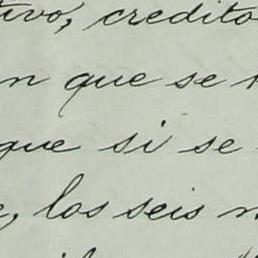 tivo, credito
n que se
que si se
, los seis